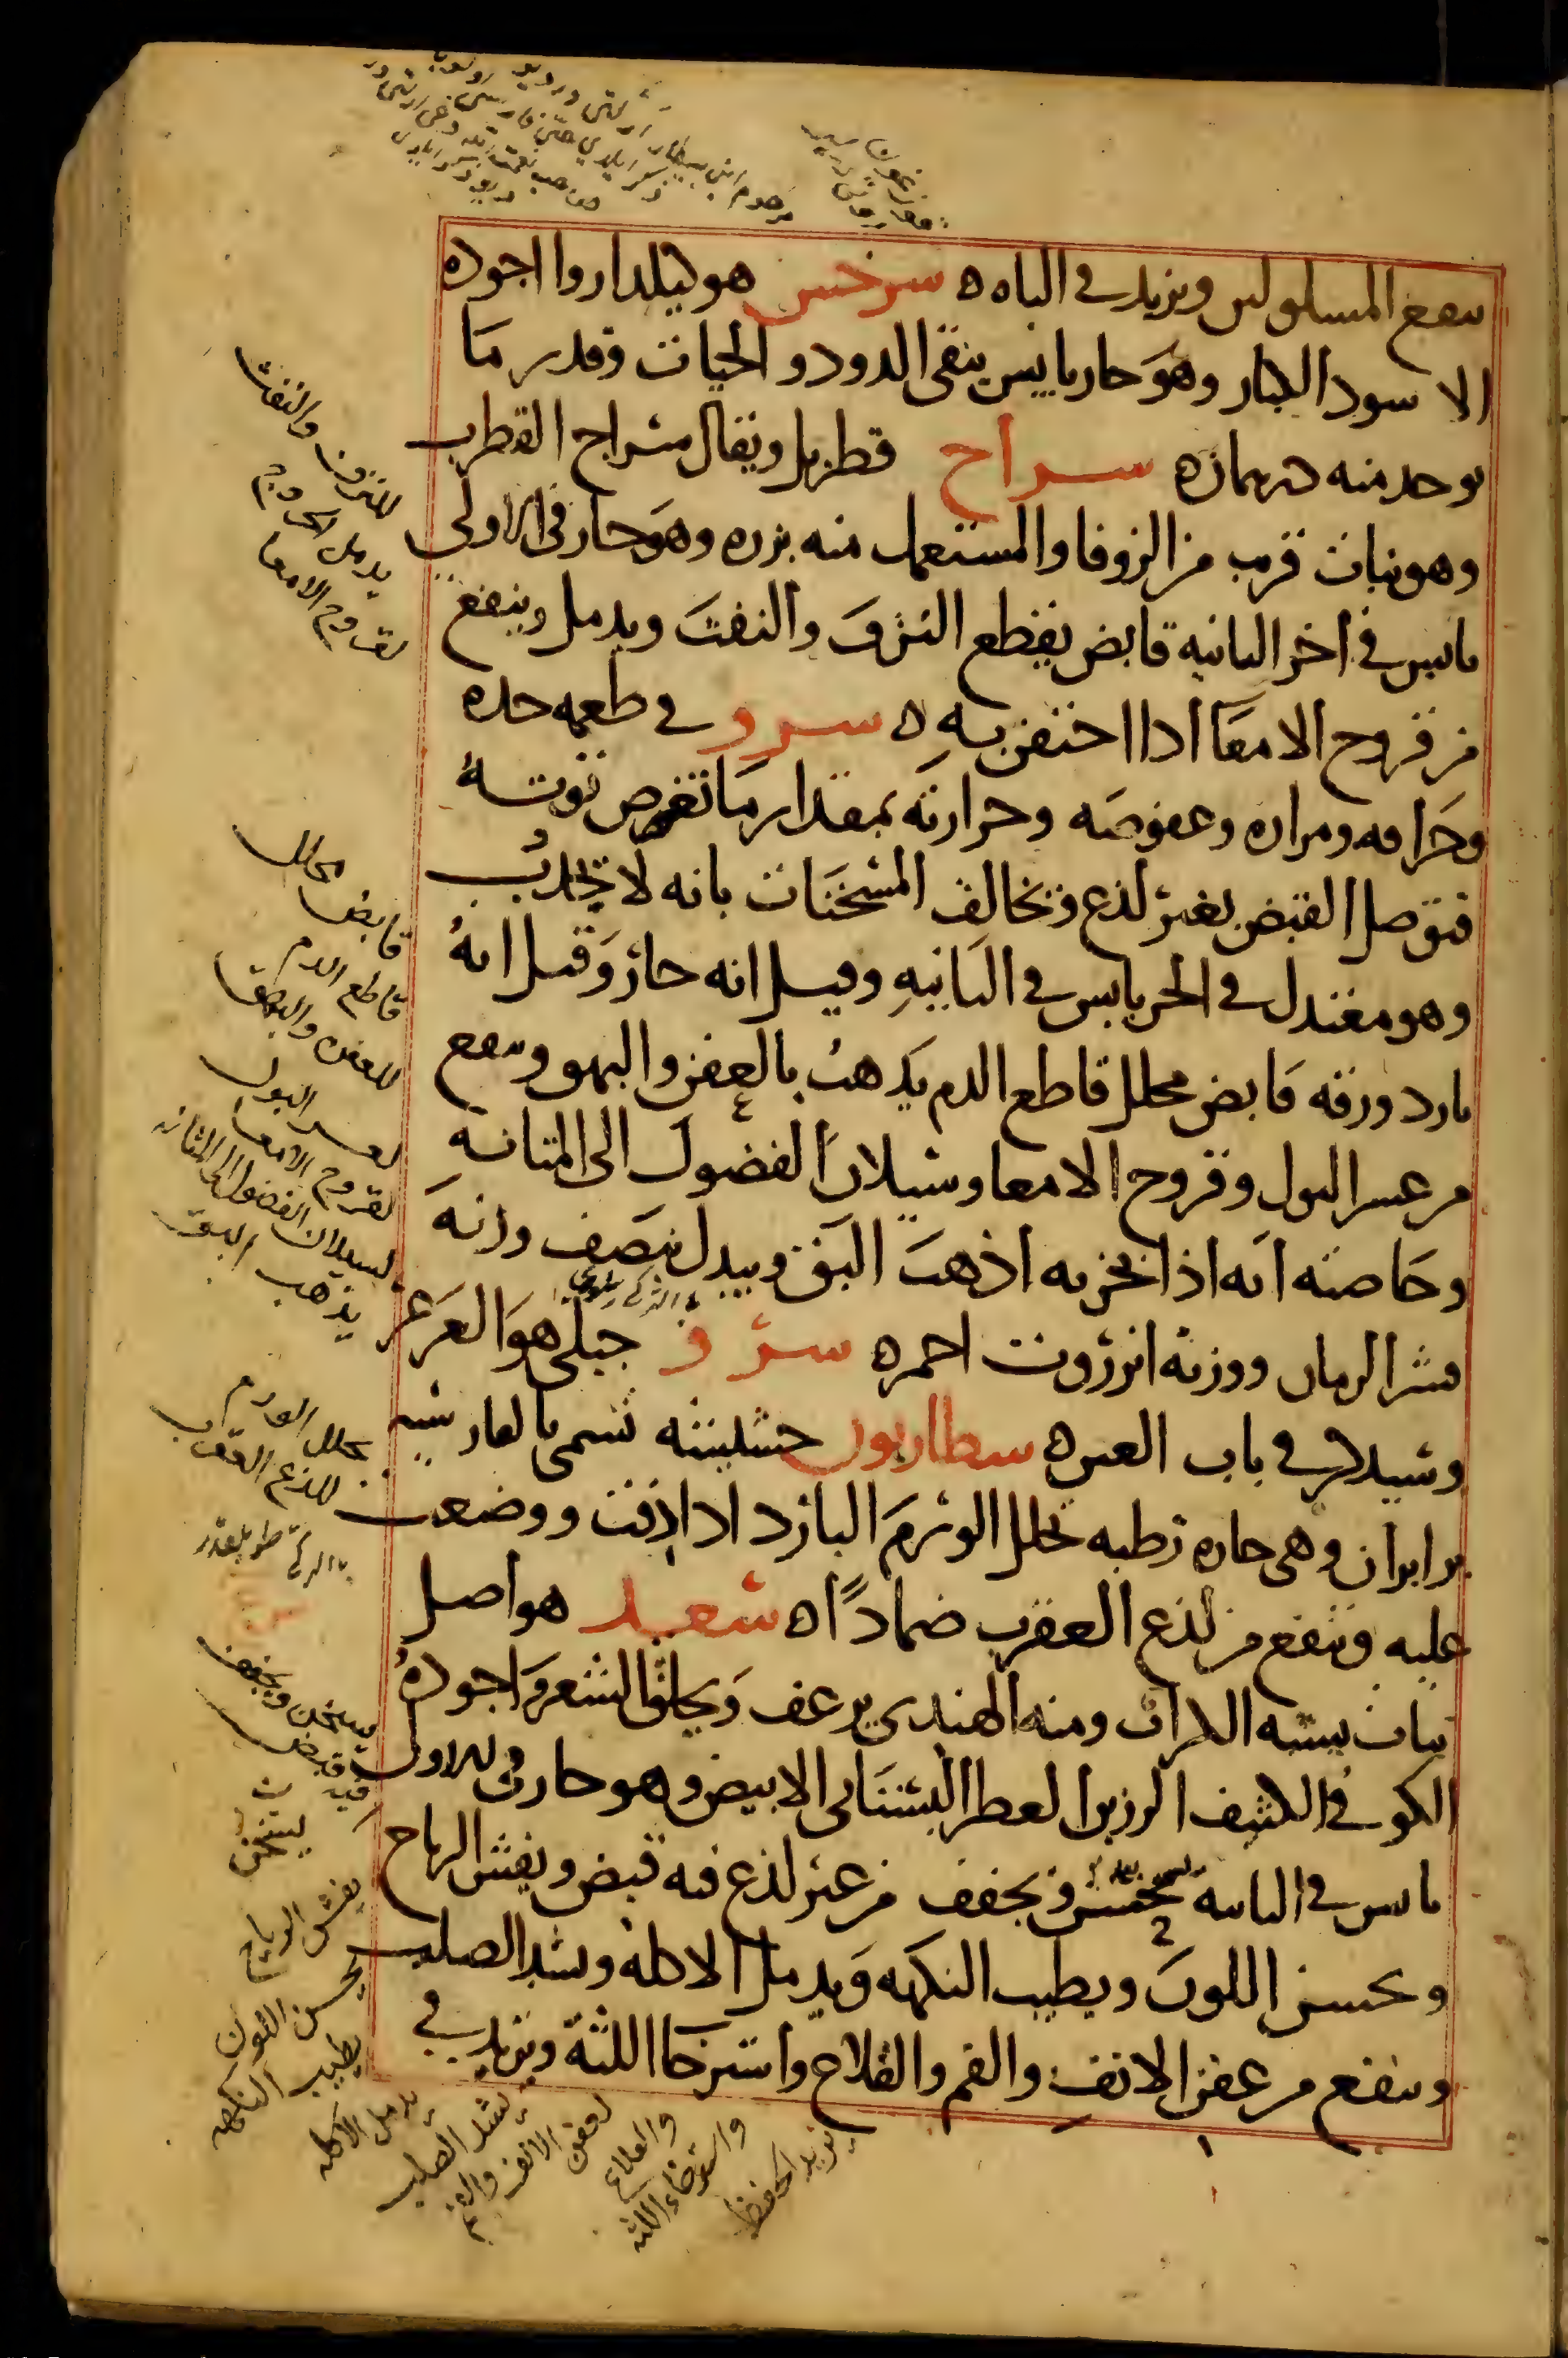 ينفع المسلولين ويزيد في الباه ه سرخس هو كيلدارو اجوده
الاسود الكبار وهو حار يابس ينقي الدود والحيات وقدر ما
يوخذ منه درهمان ه سراج قطرب ويقال سراج القطرب
وهو نبات قريب من الزوفا والمستعمل منه بزره وهو حار في الاولى
يابس في اخر الثانيه قابض يقطع النزف والنفث ويدمل وينفع
من قروح الامعا اذا احتقن به ه سرو في طعمه حده
وحرافه ومراره وعفوصه وحرارته بمقدار ما تغوص قوته
فتوصل القبض بغير لذع وتخالف المسخنات بانه لا يجذب
وهو معتدل في الحر يابس في الثانيه وقيل انه حار وقيل انه
بارد ورقه قابض محلل قاطع الدم يذهب بالعفن والبهق وينفع
من عسر البول وقروح الامعا وسيلان الفضول الى المثانه
وخاصته انه اذا بخر به اذهب البق ويبدل نصف وزنه
قشر الرمان ووزنه انزروت احمر ه سرو جبلي هو العرعر
وسيذكر في باب العين ه سطاريون حشيشه تسمى بالفارسيه
برابران وهي حاره رطبه تحلل الورم البارد اذا دقت ووضعت
عليه وتنفع من لذع العقرب ضمادًا ه سعد هو اصل
نبات يشبه الكراث ومنه الهندي يرعف ويحلق الشعر واجوده
الكوفي الكثيف الرزين العطر البستاني الابيض وهو حار في الاولى
يابس في الثانيه يسخن ويجفف من غير لذع فيه قبض ويفش الرياح
ويحسن اللون ويطيب النكهه ويدمل الاكله ويشد الصلب
وينفع من عفن الانف والفم والقلاع واسترخا اللثة ويزيد في
للنزف والنفث
يدمل الجروح
لقروح الامعا
محلل
قابض
قاطع الدم
للعفن والبهق
لعسر البول
لقروح الامعا
لسيلان الفضول الى المثانه
يذهب البق
محلل الورم
للذع العقرب
يسخن ويجفف
فيه قبض
يسخن
يفش الرياح
يحسن اللون
يطيب النكهه
يدمل الاكله
يشد الصلب
لعفن الانف والفم
والقلاع
واسترخاء اللثه
يزيد الحفظ